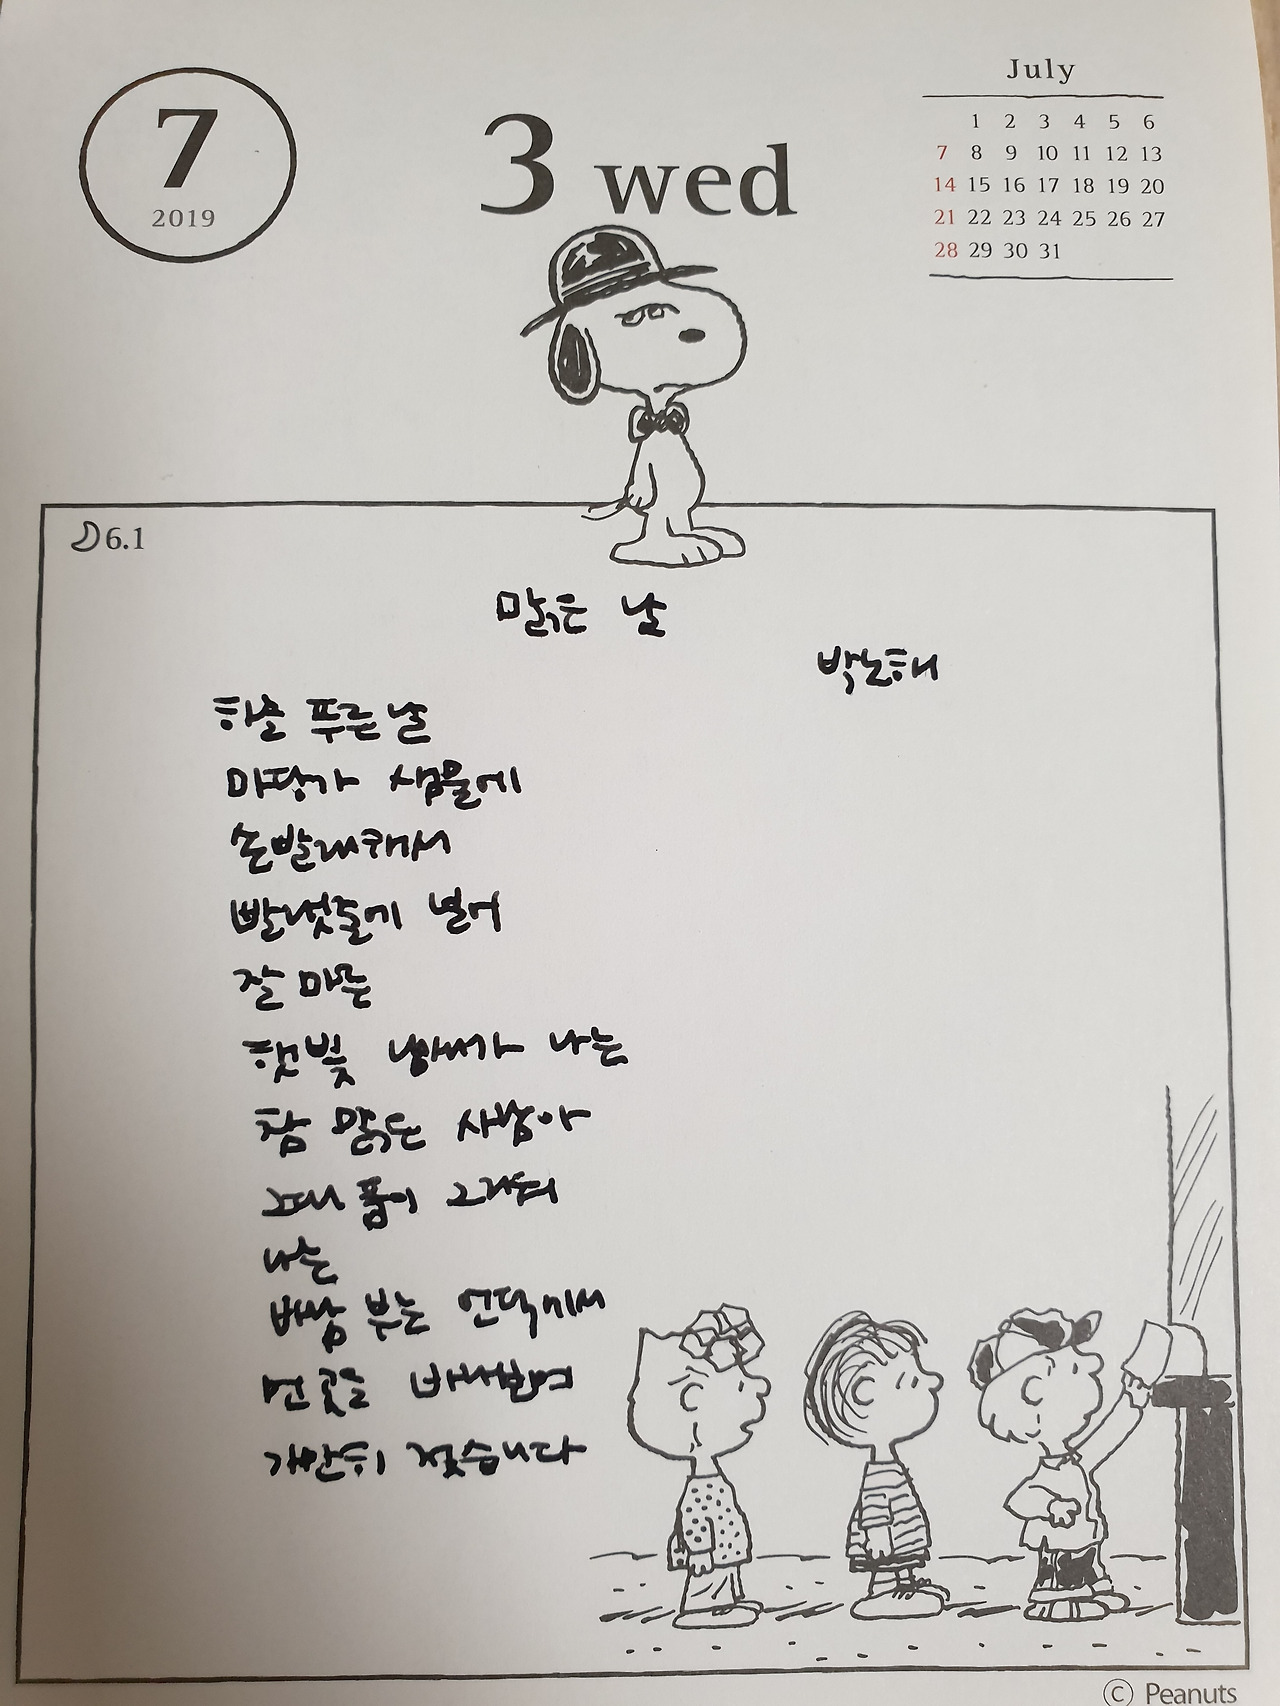 7
2019
3 wed
July
1 2 3 4 5 6
7 8 9 10 11 12 13
14 15 16 17 18 19 20
21 22 23 24 25 26 27
28 29 30 31
6.1
맑은 날
박노해
하늘 푸른 날
마당가 샘물에
손빨래해서
빨랫줄에 널어
잘 마른
햇빛 냄새가 나는
참 맑은 사람아
그대 품이 그리워
나는
바람 부는 언덕에서
먼 곳을 바라보며
가만히 젖습니다
© Peanuts